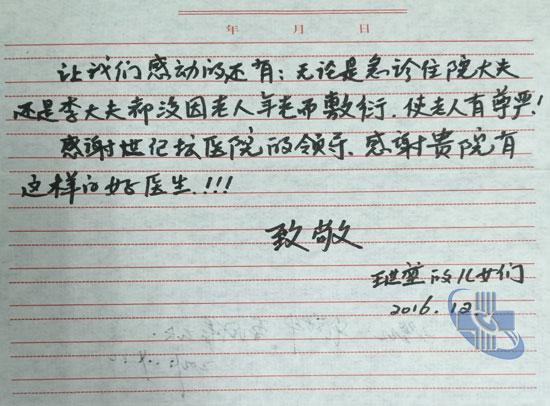 年 月 日
让我们感动的还有：无论是急诊住院大夫
还是李大夫都没因老人年老而敷衍.使老人有尊严!
感谢世纪坛医院的领导、感谢贵院有
这样的好医生.!!!
致敬
的儿女们
2016.12.